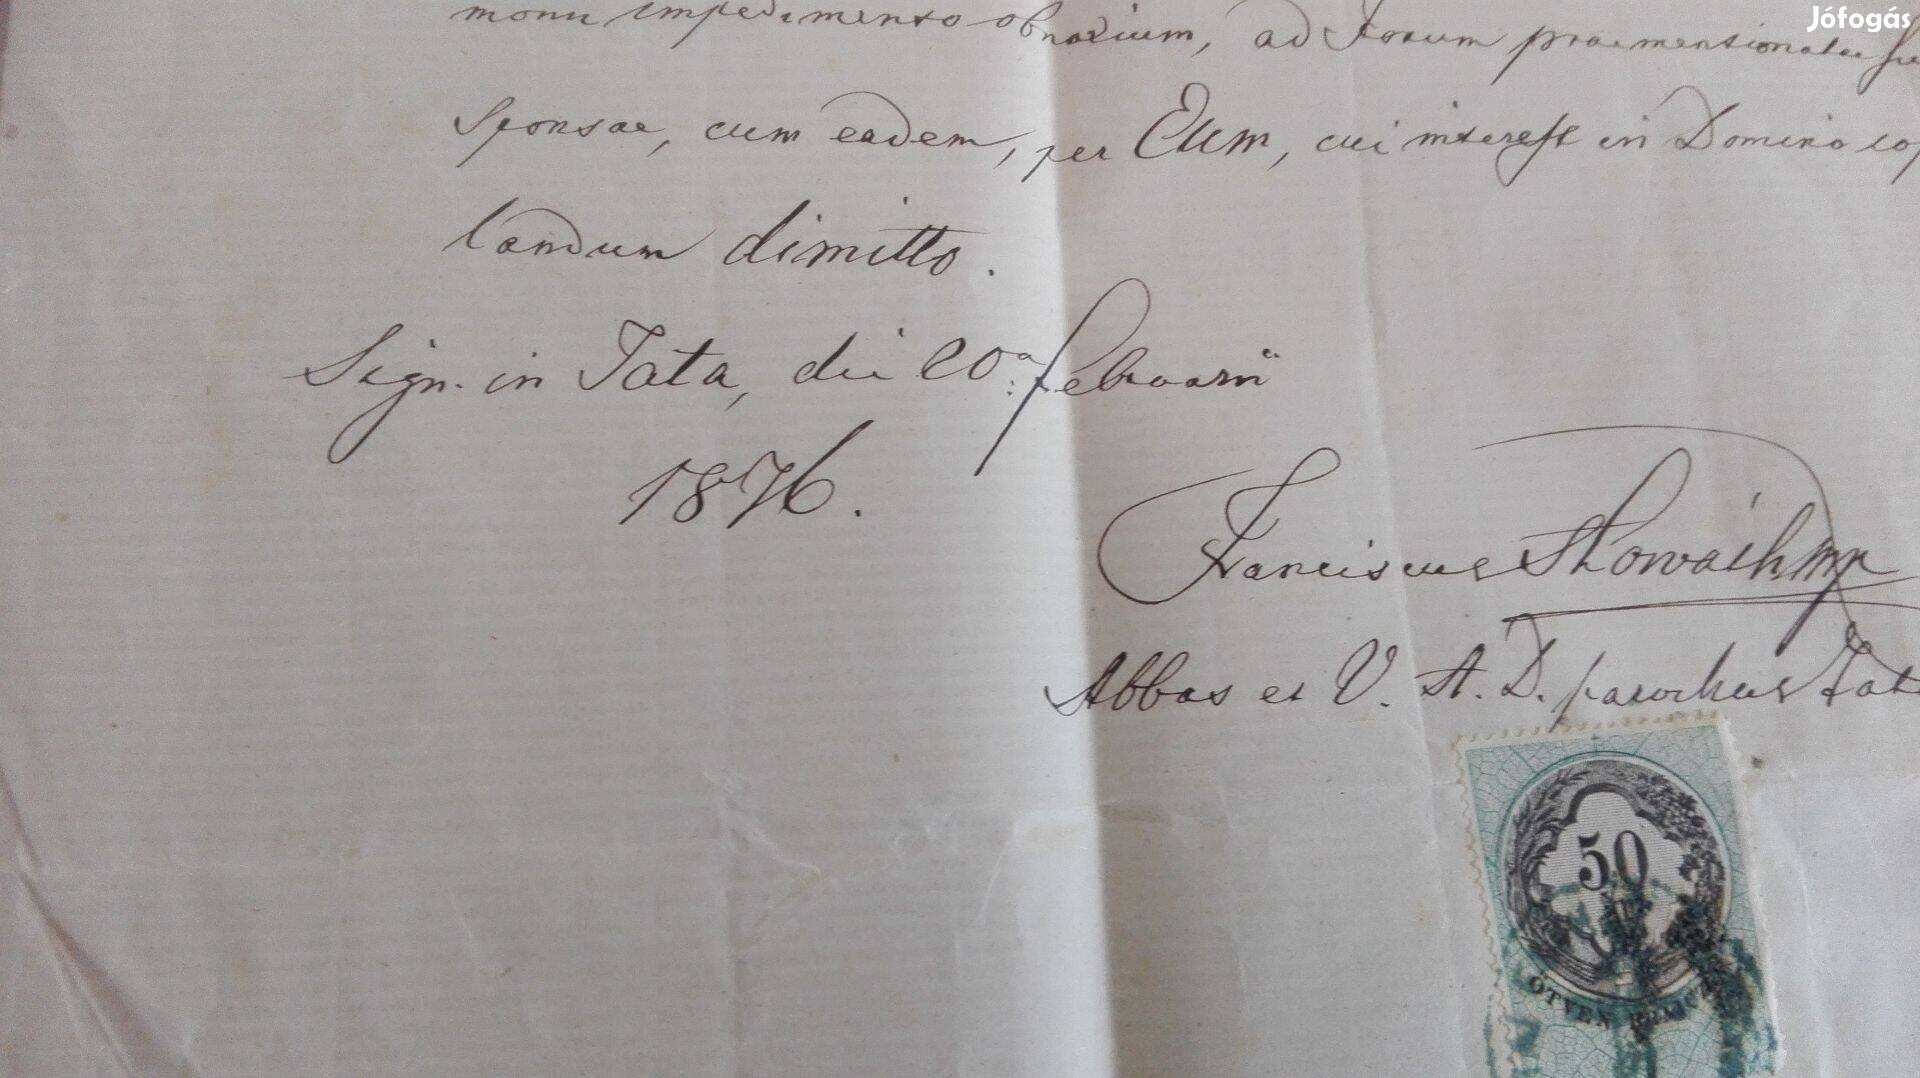 Jófogás
monii impedimento obnoxium, ad Forum praementionatae
Sponsae, cum eadem, per Eum, cui interest in Domino cop
landum dimitto.
Sign. in Tata, die 20a Februarii
1876.
Franciscus Howath mp
Abbas et V. A. D. parochus Tat
50
ÖTVEN KRAJCZ